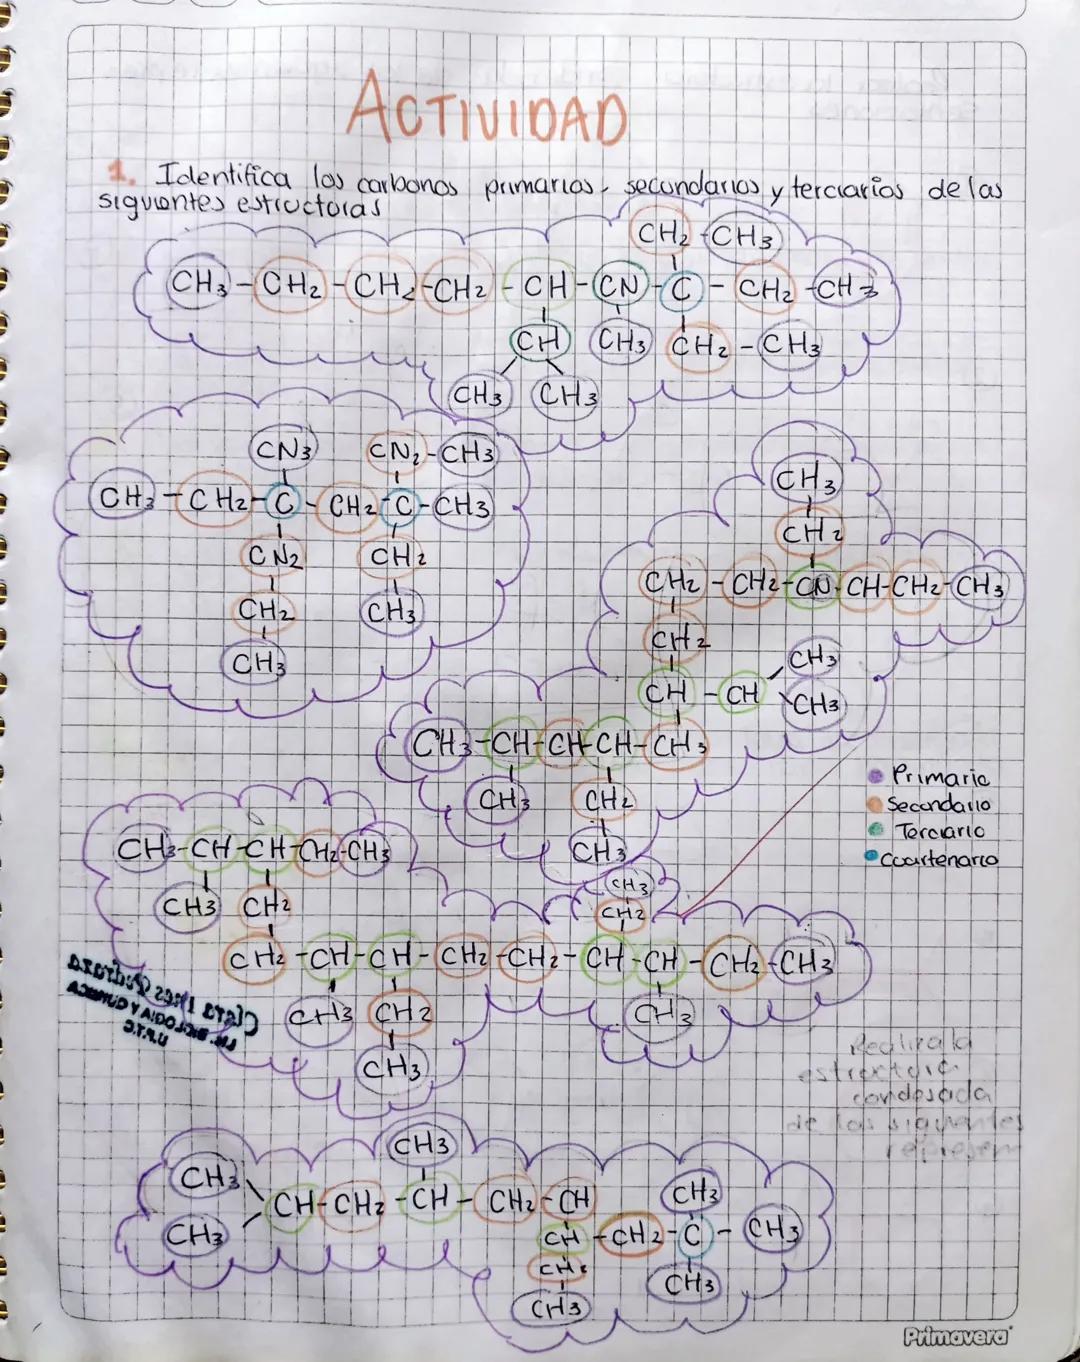 ACTIVIDAD
1. Identifica los carbonos primarios, secundarios y terciarios de las
siguientes estructoras
CH2 - CH3
CH3 - CH2 - CH2 - CH2 - CH - CN - C - CH2 - CH3
CH CH3 CH2 - CH3
CH3 CH3
CN3 CN2 - CH3
CH3 - CH2 - C - CH2 - C - CH3
CN2 CH2
CH2 CH3
CH3
CH3
CH2
CH2 - CH2 - CN - CH - CH2 - CH3
CH2
CH3
CH - CH
CH3
CH3 - CH - CH - CH - CH3
CH3 CH2
CH3
Primario
Secondario
Terciario
Coartenario
CH3 - CH - CH - CH2 - CH3
CH3 CH2
CH3
CH2
CH2 - CH - CH - CH2 - CH2 - CH - CH - CH2 - CH3
CH3 CH2 CH3
CH3
Clara Ines Pedraza
LIC. BIOLOGIA Y QUIMICA
U.P.T.C.
Realiza la
estructura
condesada
de las siguientes
represen
CH3
CH3 CH3
CH - CH2 - CH - CH2 - CH
CH3 CH - CH2 - C - CH3
CH3
CH3